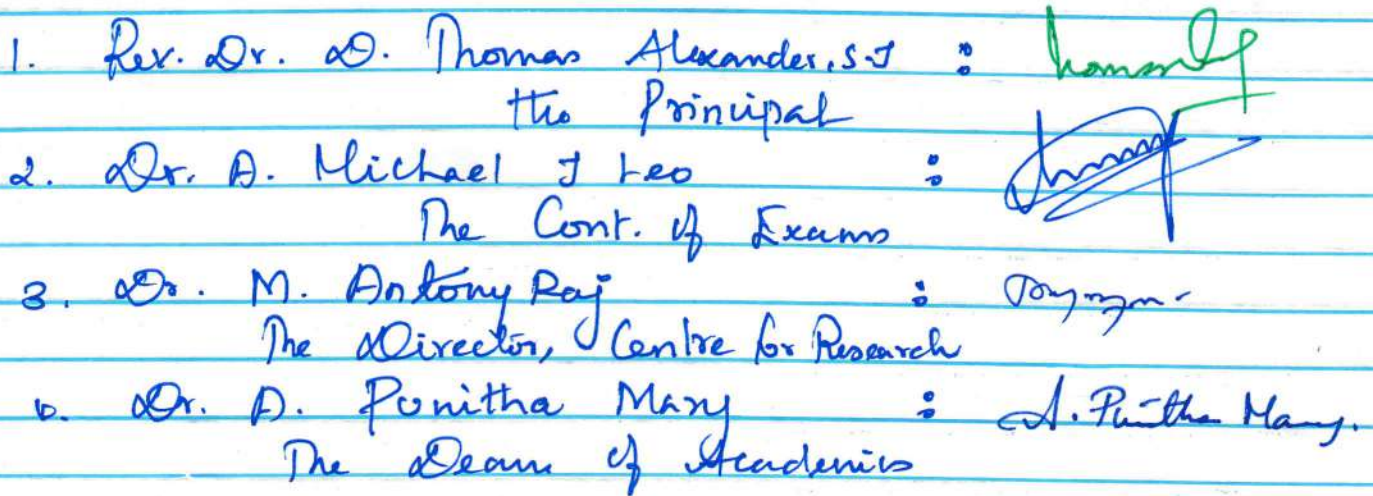 1. Rev. Dr. D. Thomas Alexander, S.J :
The Principal
2. Dr. A. Michael J Leo :
The Cont. of Exams
3. Dr. M. Antony Raj :
The Director, Centre for Research
Dr. A. Punitha Mary : A. Punitha Mary.
The Dean of Academics